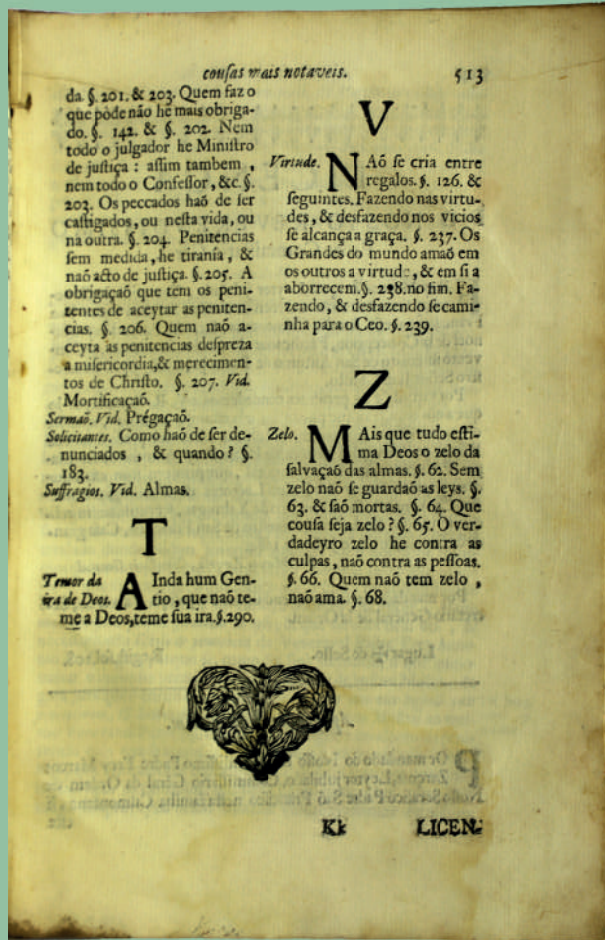 cousas mais notaveis. 513
da. §. 201. & 203. Quem faz o
que póde não he mais obriga-
do. §. 142. & §. 202. Nem
todo o julgador he Ministro
de justiça : assim tambem ,
nem todo o Confessor, &c. §.
203. Os peccados haõ de ser
castigados, ou nesta vida, ou
na outra. §. 204. Penitencias
sem medida, he tirania, &
naõ acto de justiça. §. 205. A
obrigaçaõ que tem os peni-
tentes de aceytar as peniten-
cias. §. 206. Quem naõ a-
ceyta as penitencias despreza
a misericordia,& merecimen-
tos de Christo. §. 207. Vid.
Mortificaçaõ.
Sermaõ. Vid. Prégaçaõ.
Solicitantes. Como haõ de ser de-
nunciados , & quando ? §.
183.
Suffragios. Vid. Almas.
T
Temor da
ira de Deos. AInda hum Gen-
tio, que naõ te-
me a Deos,teme sua ira.§.290.
V
Virtude. NAõ se cria entre
regalos. §. 126. &
seguintes. Fazendo nas virtu-
des, & desfazendo nos vicios
se alcança a graça. §. 237. Os
Grandes do mundo amaõ em
os outros a virtude, & em si a
aborrecem.§. 238. no fim. Fa-
zendo, & desfazendo se cami-
nha para o Ceo. §. 239.
Z
Zelo. MAis que tudo esti-
ma Deos o zelo da
salvaçaõ das almas. §. 62. Sem
zelo naõ se guardaõ as leys. §.
63. & saõ mortas. §. 64. Que
cousa seja zelo ? §. 65. O ver-
dadeyro zelo he contra as
culpas, naõ contra as pessoas.
§. 66. Quem naõ tem zelo ,
naõ ama. §. 68.
Kk LICEN-